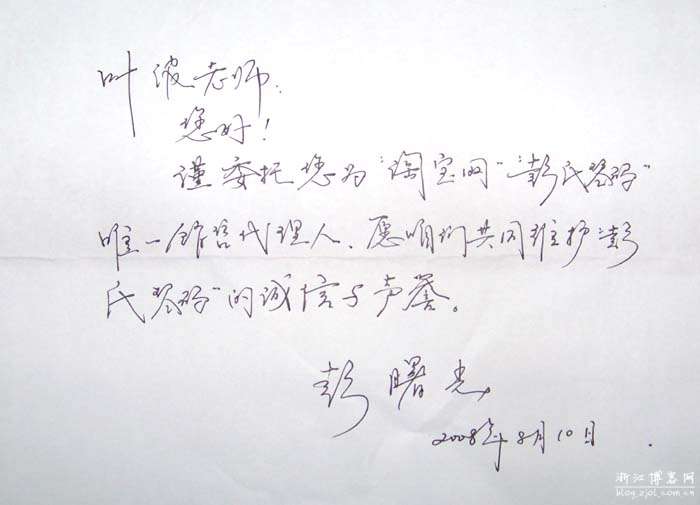 叶波老师:
您好!
谨委托您为“淘宝网”“彭氏琴码”
唯一销售代理人、愿咱们共同维护“彭
氏琴码”的诚信与声誉。
彭曙光
2008年8月10日.
浙江博客网
blog.zjol.com.cn